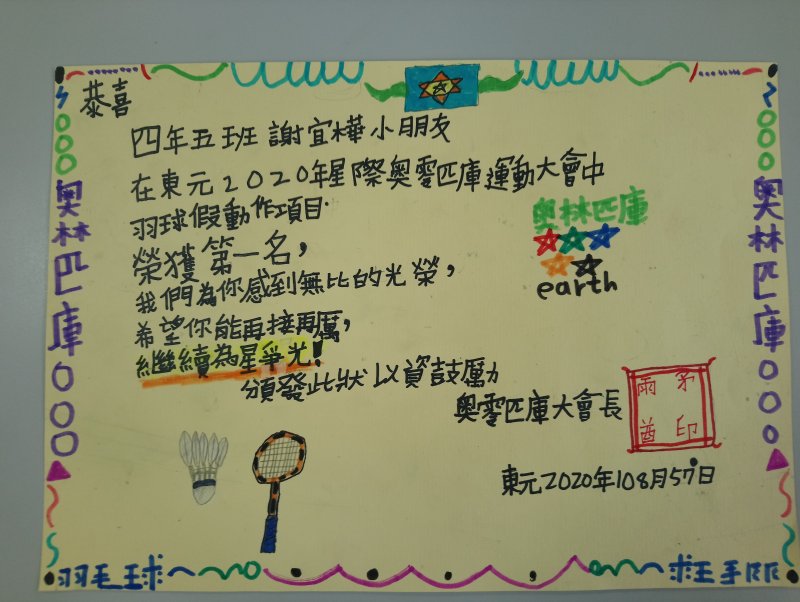 恭喜
四年五班 謝宜樺小朋友
在東元2020年星際奧零匹庫運動大會中
羽球假動作項目.
榮獲第一名,
我們為你感到無比的光榮,
希望你能再接再厲,
繼續為星爭光!
頒發此狀以資鼓勵
奧林匹庫
earth
奧零匹庫大會長
東元2020年108月57日
奧林匹庫
奧林匹庫
羽毛球